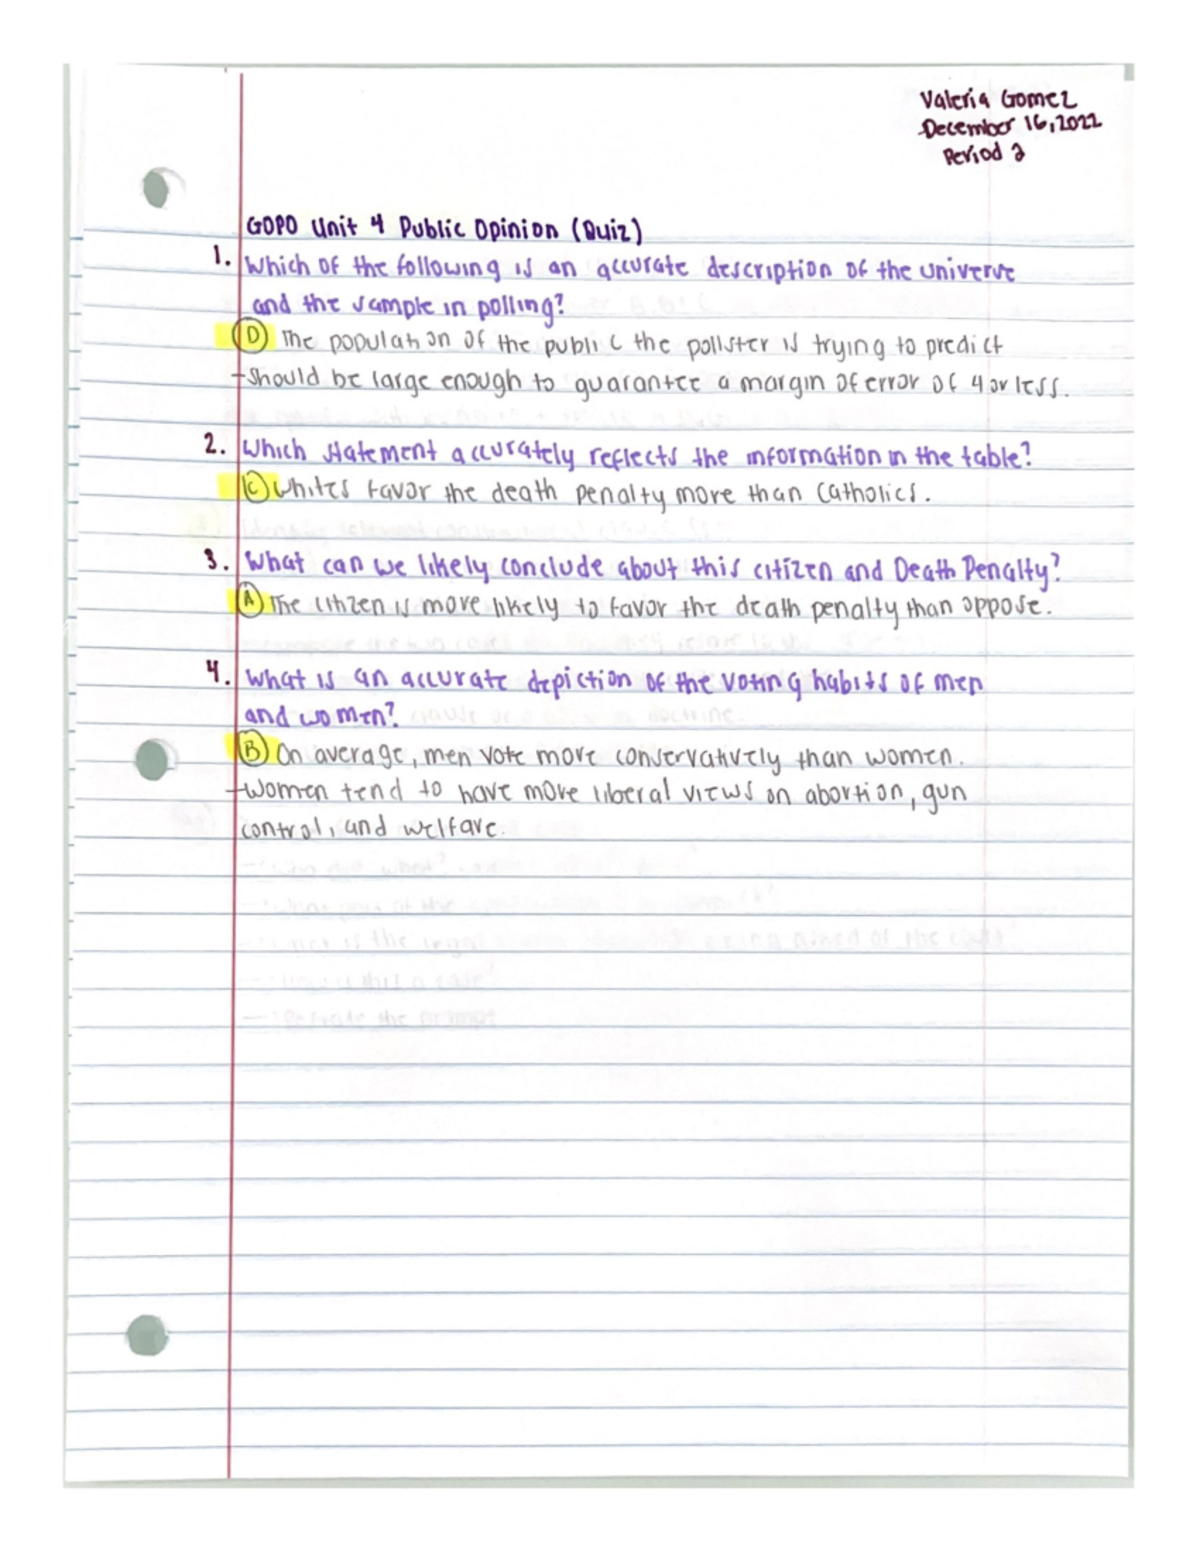 Valeria Gomez
December 16, 2022
Period 2
GOPO Unit 4 Public Opinion (Quiz)
1. Which of the following is an accurate description of the universe
and the sample in polling?
D The population of the public the pollster is trying to predict
-should be large enough to guarantee a margin of error of 4 or less.
2. Which statement accurately reflects the information in the table?
C Whites favor the death penalty more than Catholics.
3. What can we likely conclude about this citizen and Death Penalty?
A The citizen is more likely to favor the death penalty than oppose.
4. What is an accurate depiction of the voting habits of men
and women?
B On average, men vote more conservatively than women.
-Women tend to have more liberal views on abortion, gun
control, and welfare.